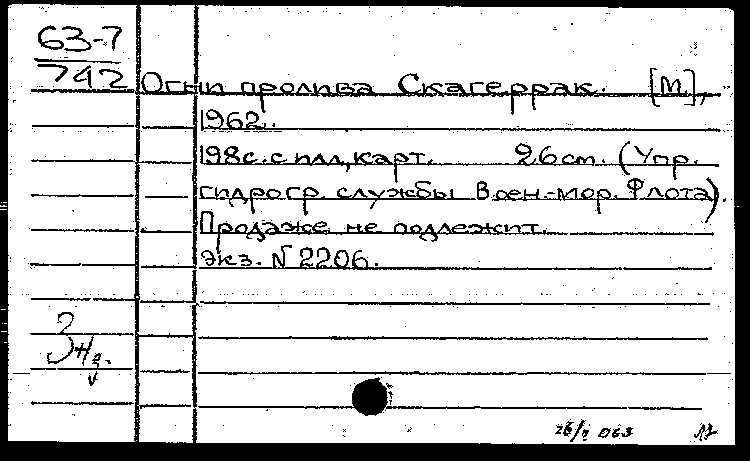 63-7
742
Огни пролива Скагеррак. [М.],
1962.
198с. с илл., карт. 26 cm. (Упр.
гидрогр. службы Воен.-мор. Флота).
Продаже не подлежит.
экз. N 2206.